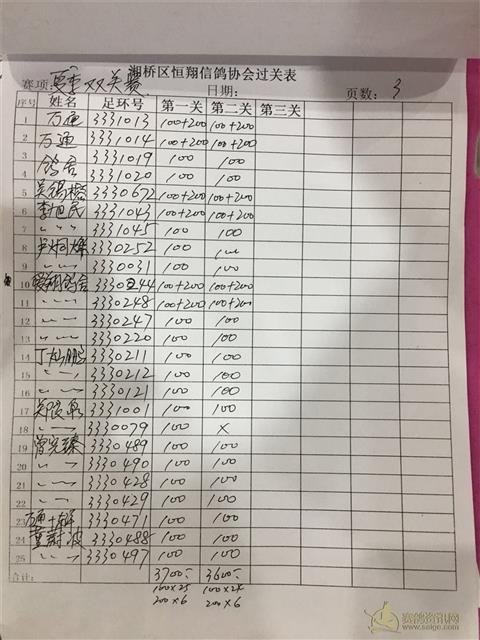 湘桥区恒翔信鸽协会过关表
赛项：夏季双关赛 日期： 页数：3
序号 姓名 足环号 第一关 第二关 第三关
1 万通 3331013 100+200 100+200
2 万通 3331014 100+200 100+200
3 鸽舍 3331019 100 100
4 3331020 100 100
5 3330672 100+200 100+200
6 李旭民 3331043 100+200 100+200
7 〃 〃 3331045 100 100
8 3330252 100 100
9 〃 〃 3330031 100 100
10 翔鸽舍 3330244 100+200 100+200
11 〃 〃 3330248 100+200 100+200
12 〃 〃 3330247 100 100
13 〃 〃 3330220 100 100
14 丁灿鹏 3330211 100 100
15 〃 〃 3330212 100 100
16 〃 〃 3330121 100 100
17 3331001 100 100
18 〃 3330079 100 X
19 3330489 100 100
20 〃 〃 3330490 100 100
21 〃 〃 3330428 100 100
22 〃 〃 3330429 100 100
23 3330471 100 100
24 3330488 100 100
25 〃 〃 3330497 100 100
合计： 3700- 3600-
100×25 100×24
200×6 200×6
赛鸽资讯网
www.saige.com